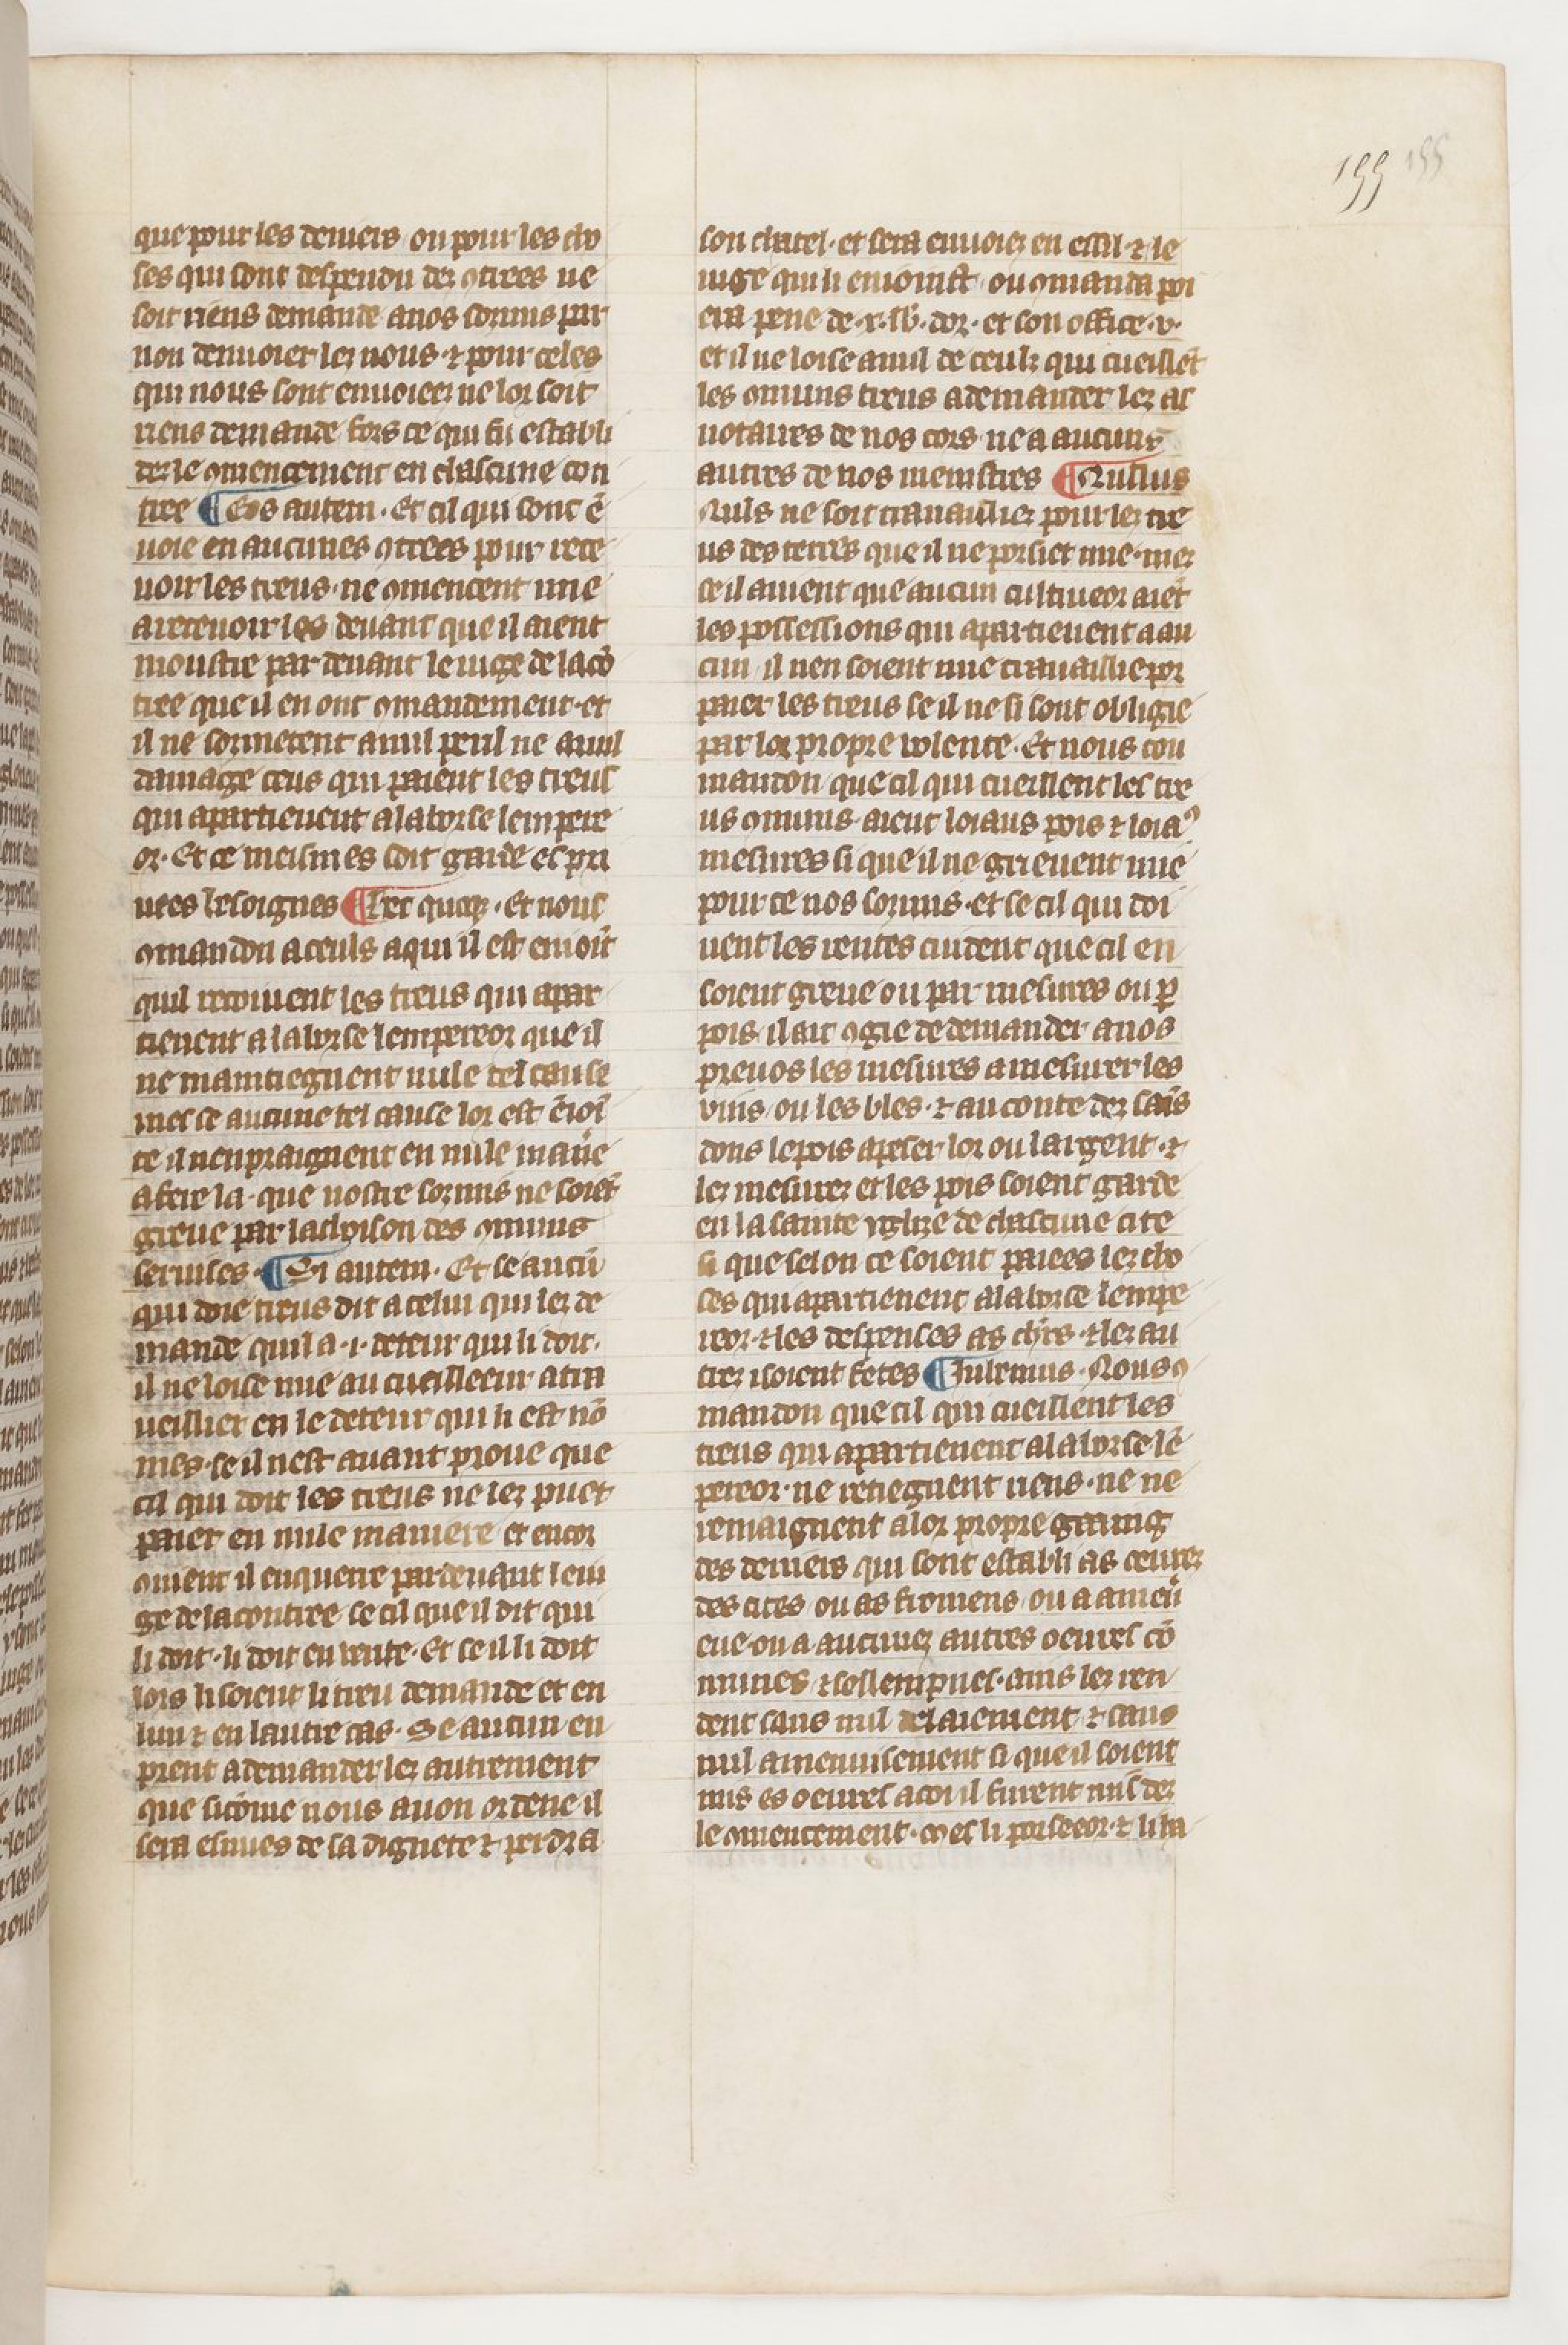 199 155
que pour les deniers ou pour les cho
ses qui sont despendu dez ɔtrees ne
soit riens demande a nos sozmis par
non denuoier lez nous ⁊ pour celes
qui nous sont enuoieez ne lor soit
riens demande fors ce qui fu establi
dez le ɔmencement en chascune con
tree ¶ Eos autem. Et cil qui sont ē
uoie en aucunes ɔtrees pour rece
uoir les treus. ne ɔmencent mie
a receuoir les deuant que il aient
moustre par deuant le iuge de la cō
tree que il en ont ɔmandement. et
il ne sozmetent a nul peril ne a nul
damage ceus qui paient les treus
qui apartienent a la borse lempere
or. Et ce meismes soit garde es pri
uees besoignes ¶ Hec quoqꝫ. Et nous
ɔmandon a ceuls a qui il est enioīt
quil recoiuent les treus qui apar
tienent a la borse lempereor que il
ne maintiegnent nule tel cause
mes se aucune tel cause lor est ēioī
te il nenpraignent en nule mañe
a fere la. que nostre sozmis ne soiēt
greue par lachoison des ɔmuns
seruises. ¶ Si autem. Et se aucū
qui doie treus dit a celui qui lez de
mande quil a .i. deteur qui li doit.
il ne loise mie au cueilleeur a tra
ueillier en le deteur qui li est nō
mes. se il nest auant proue que
cil qui doit les treus ne lez puet
paier en nule maniere et encor
ɔuient il enquerre par deuant le iu
ge de la contree se cil que il dit qui
li doit. li doit en verite. Et se il li doit
lors li soient li treu demande et en
lun ⁊ en lautre cas. Se aucun en
prent a demander lez autrement
que sicōme nous auon ordene il
sera esmues de sa dignete ⁊ perdra
son chatel. et sera enuoiez en essil ⁊ le
iuge qui li enioinst ou ɔmanda poi
era pene de .x. lb. dor. et son office .v.
et il ne loise a nul de ceulz qui cueillēt
les ɔmuns treus a demander lez as
notaires de nos cors ne a aucuns
autres de nos menistres ¶ Nullus
Nuls ne soit trauaulliez pour lez tre
us des terres que il ne porsiet mie. mez
se il auient que aucun cultiueor aiēt
les possessions qui apartienent a au
cun il nen soient mie trauaillie por
paier les treus se il ne si sont obligie
par lor propre volente. Et nous cou
mandon que cil qui cueillent les tre
us ɔmuns aient loiaus pois ⁊ loiaꝰ
mesures si que il ne grieuent mie
pour ce nos sozmis. et se cil qui doi
uent les rentes cuident que cil en
soient greue ou par mesures ou ꝑ
pois il ait ɔgie de demander a nos
preuos les mesures a mesurer les
vins ou les bles. ⁊ au conte dez sains
dons le pois a peser lor ou largent. ⁊
lez mesurez et les pois soient garde
en la sainte yglize de chascune cite
si que selon ce soient paiees lez cho
ses qui apartienent a la borse lempe
reor. ⁊ les despenses as chr̄s. ⁊ lez au
trez i soient fetes ¶ Iubemus. Nous ɔ
mandon que cil qui cueillent les
treus qui apartienent a la borse lē
pereor. ne retiegnent riens. ne ne
remaignent a lor propre gaaing
des deniers qui sont establi as oeurez
des cites ou as fromens ou a ameñ
eue. ou a aucunez autres oeures cō
munes ⁊ sollempnes. ains lez ren
dent sans nul delaiement ⁊ sans
nul amenuisement si que il soient
mis es oeures a coi il furent mis dez
le ɔmencement. mes li porseeor. ⁊ li ha